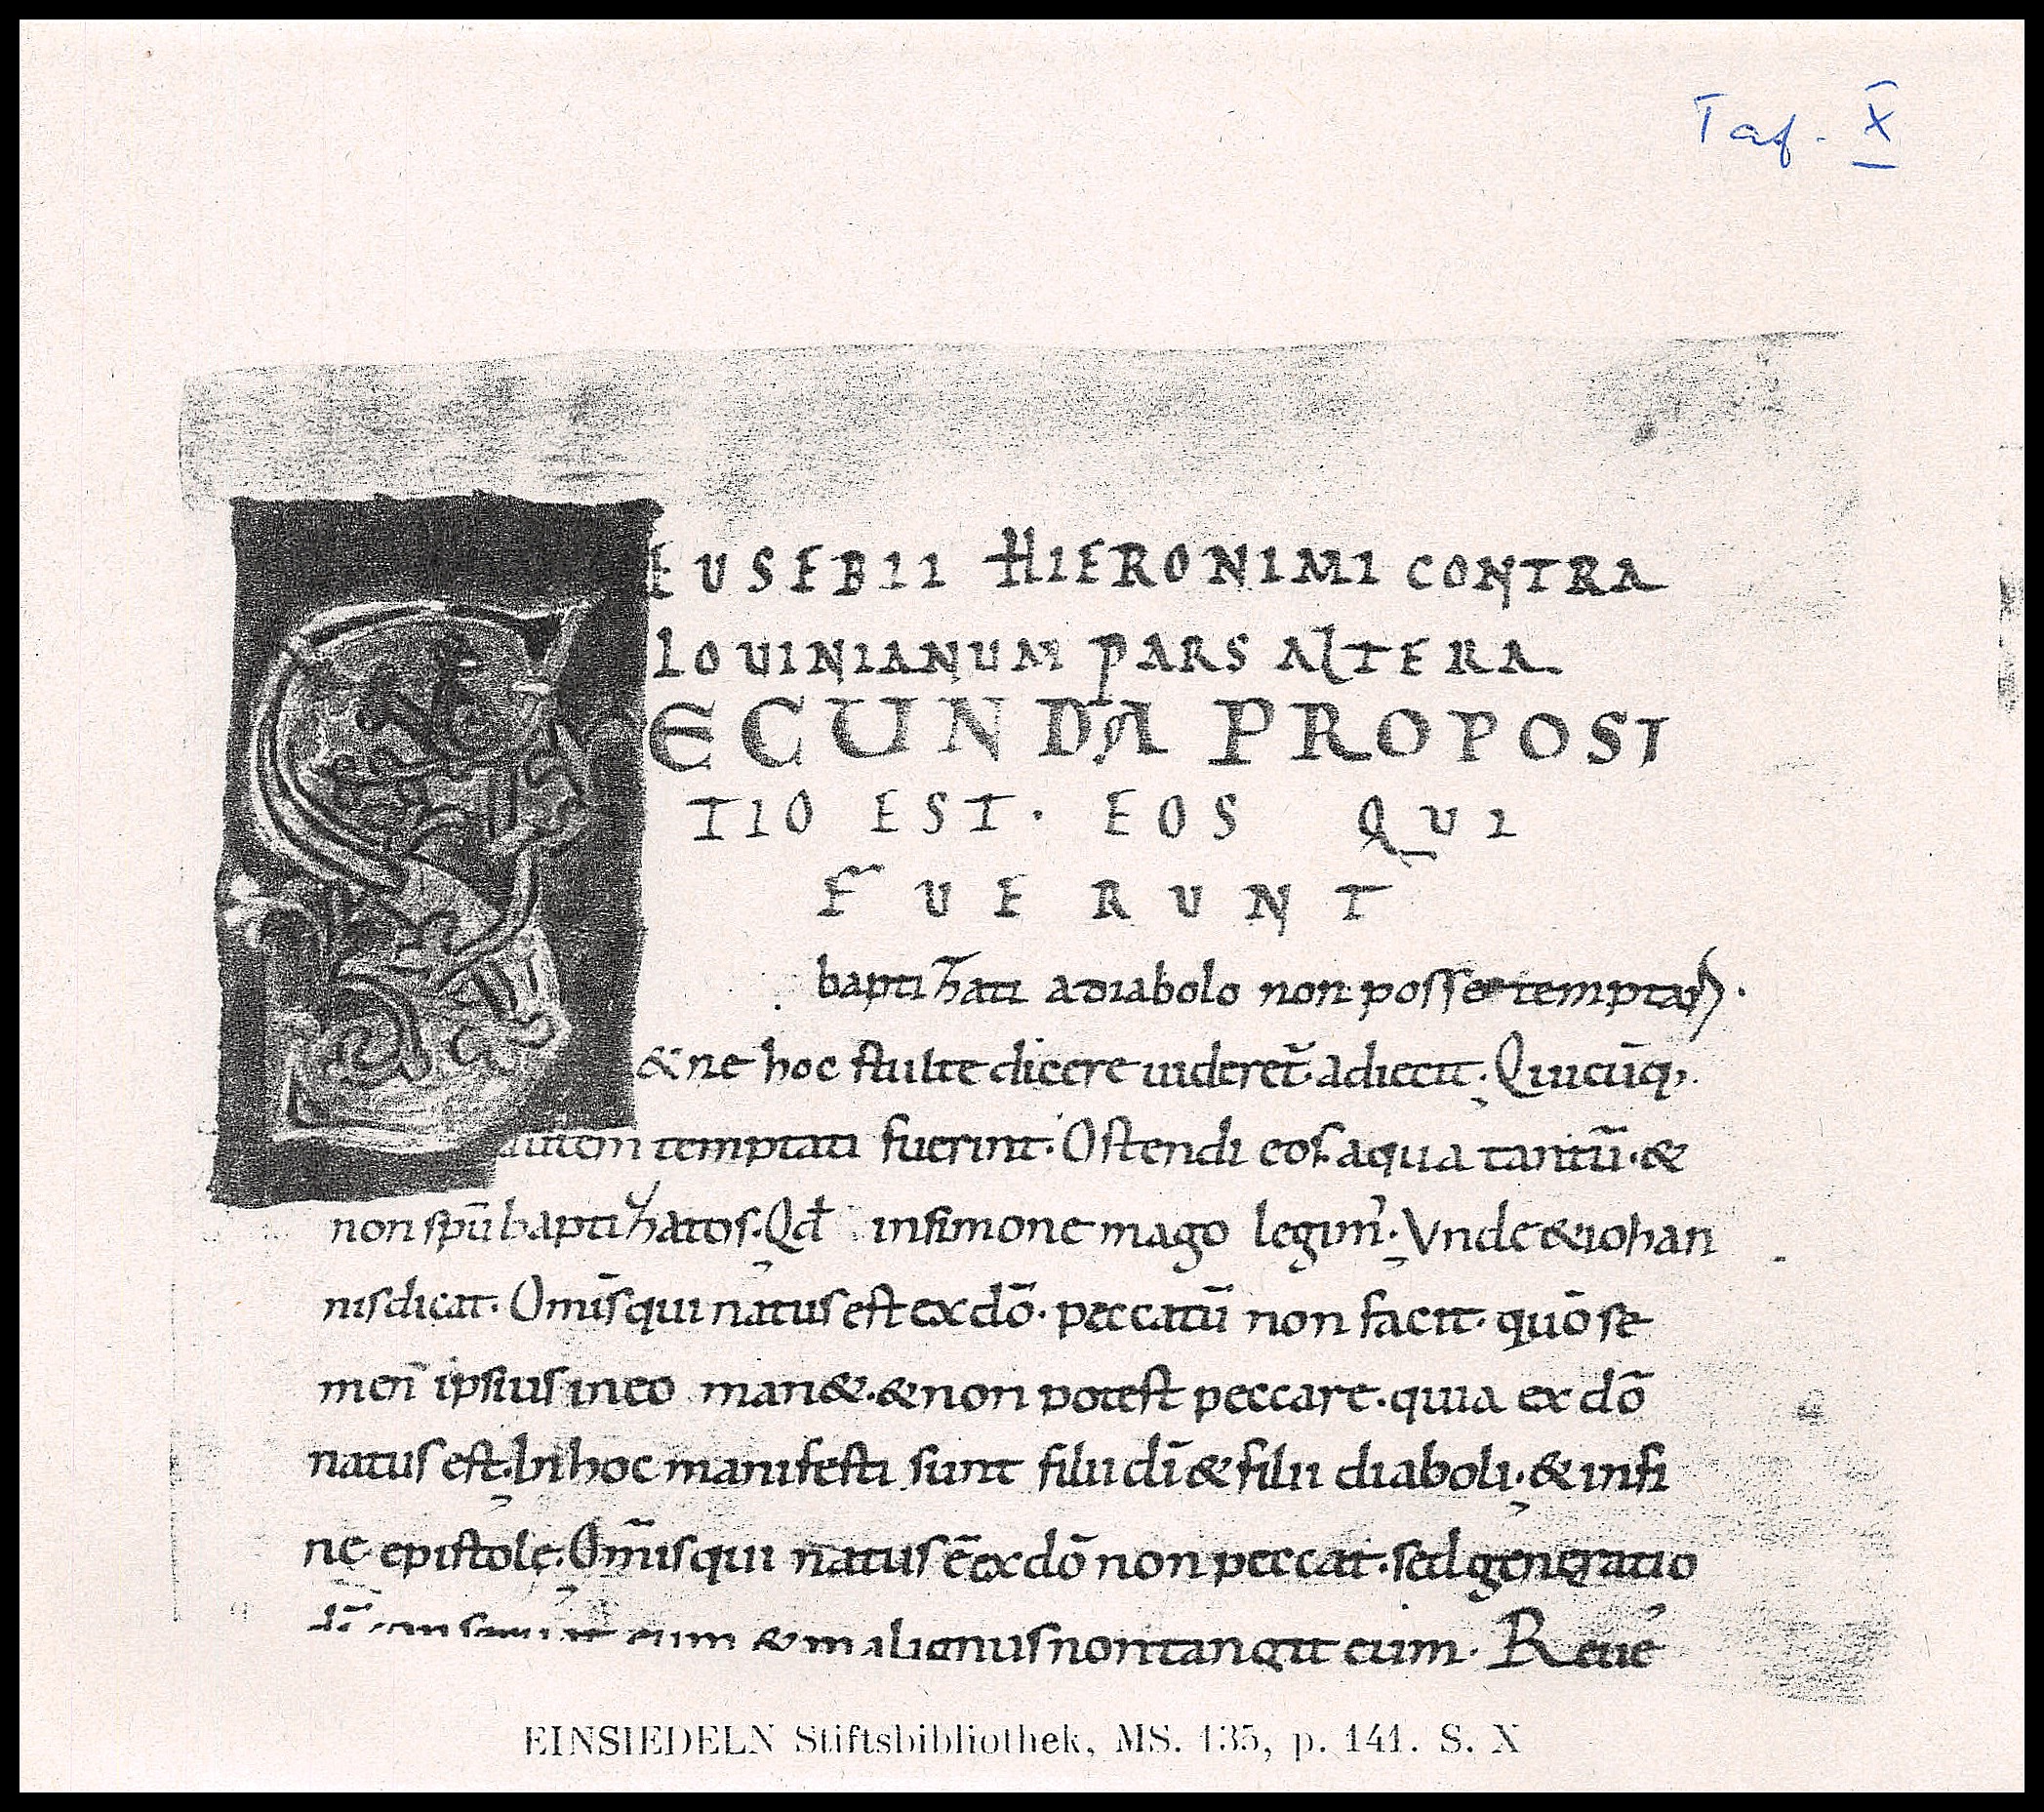 Taf. X
EUSEBII HIERONIMI CONTRA
IOUINIANUM PARS ALTERA
SECUNDA PROPOSI
TIO EST· EOS QUI
FUERUNT
baptizati a diabolo non posse temptari·
& ne hoc stulte dicere uideret̄· adiecit· Quicūq;
autem temptati fuerint· Ostendi eos aqua tantū· &
non spū baptizatos· Qd̄ in simone mago legim᾽· Vnde & iohan
nis dicat· Om̄is qui natus est ex dō· peccatū non facit· quō se
men ipsius in eo man&· & non potest peccare· quia ex dō
natus est· In hoc manifesti sunt filii dī & filii diaboli· & in fi
ne epistolę· Om̄is qui natus ē ex dō non peccat· sed generatio
dī conseruat eum & malignus non tangit eum· Reue
EINSIEDELN Stiftsbibliothek, MS. 135, p. 141. S. X